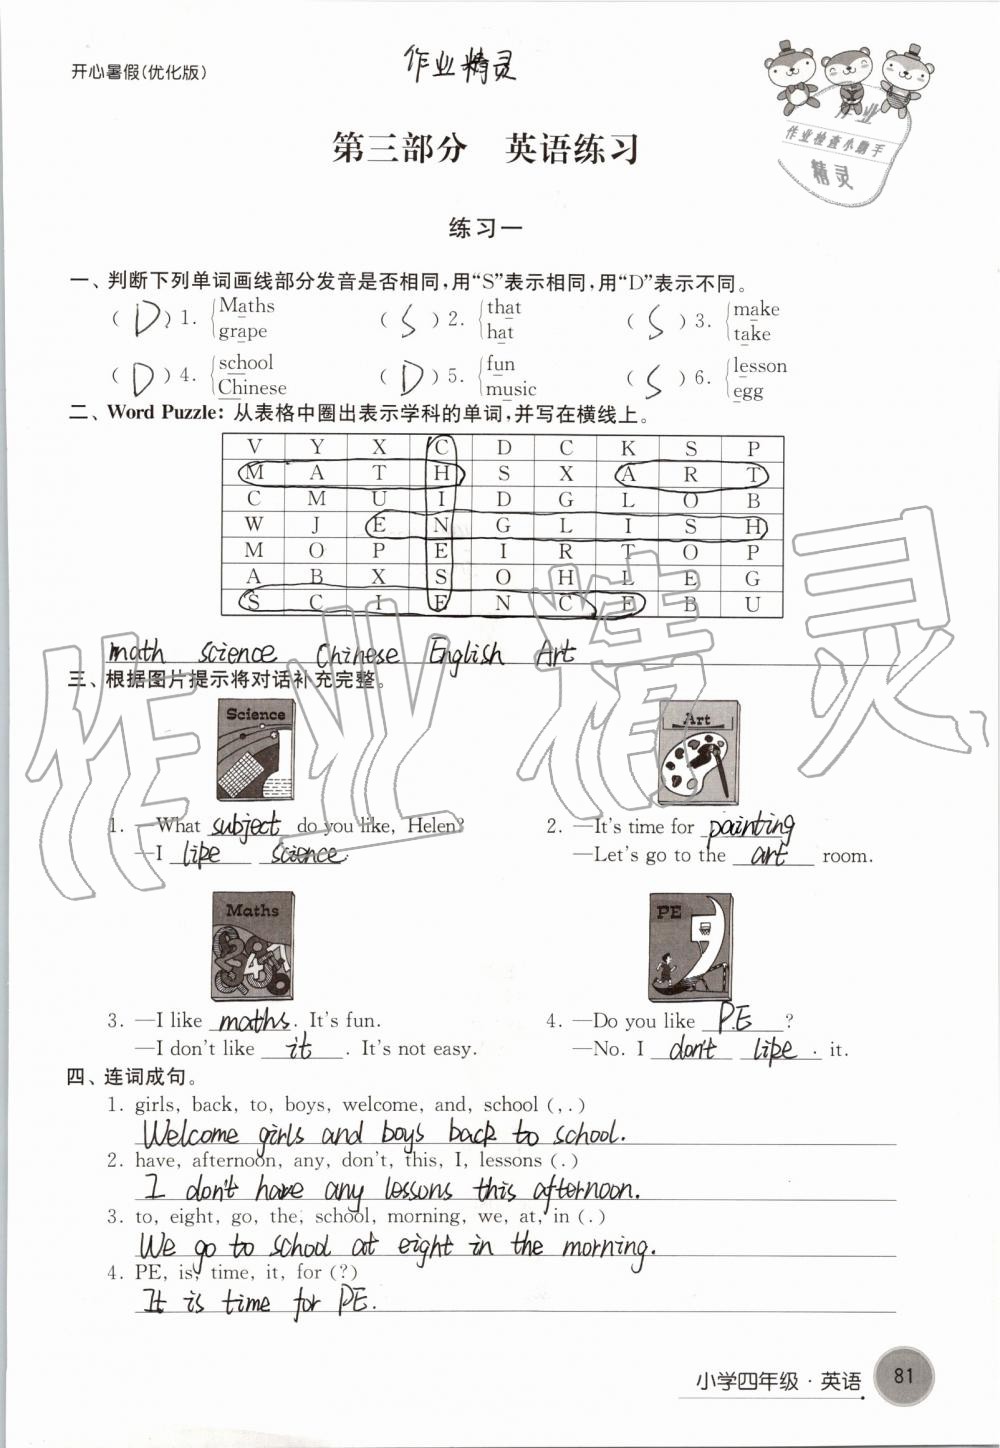 开心暑假(优化版)
作业精灵
作业
作业检查小助手
精灵
第三部分 英语练习
练习一
一、判断下列单词画线部分发音是否相同,用“S”表示相同,用“D”表示不同。
( D ) 1. Maths grape ( S ) 2. that hat ( S ) 3. make take
( D ) 4. school Chinese ( D ) 5. fun music ( S ) 6. lesson egg
二、Word Puzzle: 从表格中圈出表示学科的单词,并写在横线上。
V Y X C D C K S P
M A T H S X A R T
C M U I D G L O B
W J E N G L I S H
M O P E I R T O P
A B X S O H L E G
S C I E N C E B U
math science Chinese English Art
三、根据图片提示将对话补充完整。
Science
Art
1. —What subject do you like, Helen? 2. —It's time for painting
—I like science. —Let's go to the art room.
Maths
PE
3. —I like maths. It's fun. 4. —Do you like PE ?
—I don't like it . It's not easy. —No. I don't like . it.
四、连词成句。
1. girls, back, to, boys, welcome, and, school (,.)
Welcome girls and boys back to school.
2. have, afternoon, any, don't, this, I, lessons (.)
I don't have any lessons this afternoon.
3. to, eight, go, the, school, morning, we, at, in (.)
We go to school at eight in the morning.
4. PE, is, time, it, for (?)
It is time for PE.
小学四年级·英语 81
作业精灵